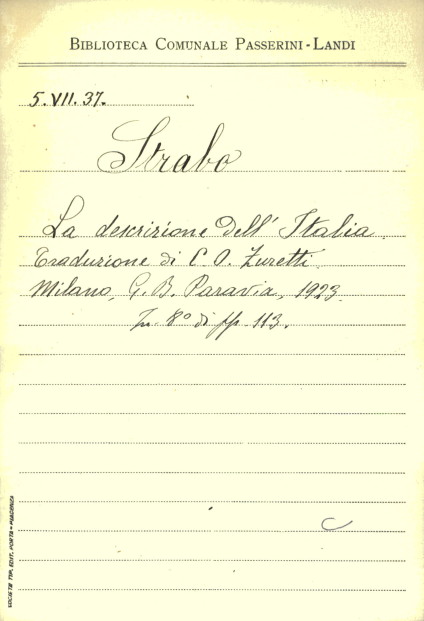 BIBLIOTECA COMUNALE PASSERINI-LANDI
5.VII.37.
Strabo
La descrizione dell'Italia.
Traduzione di C. O. Zuretti.
Milano, G. B. Paravia, 1923.
In 8° di pp. 113.
C
SOCIETÀ TIP. EDIT. PORTA - PIACENZA